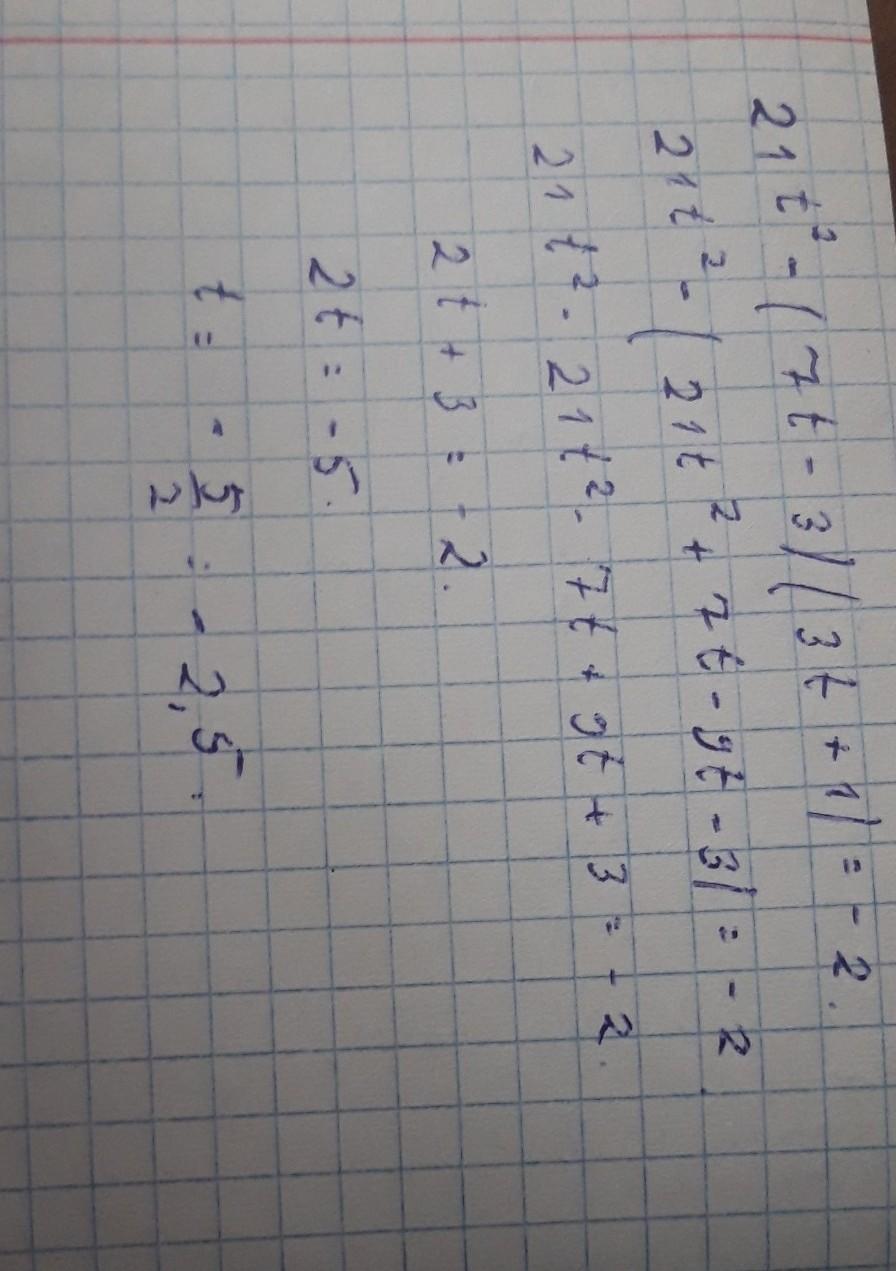 21t² - (7t - 3)(3t + 1) = -2.
21t² - (21t² + 7t - 9t - 3) = -2
21t² - 21t² - 7t + 9t + 3 = -2.
2t + 3 = -2.
2t = -5.
t = -5/2 = -2,5.